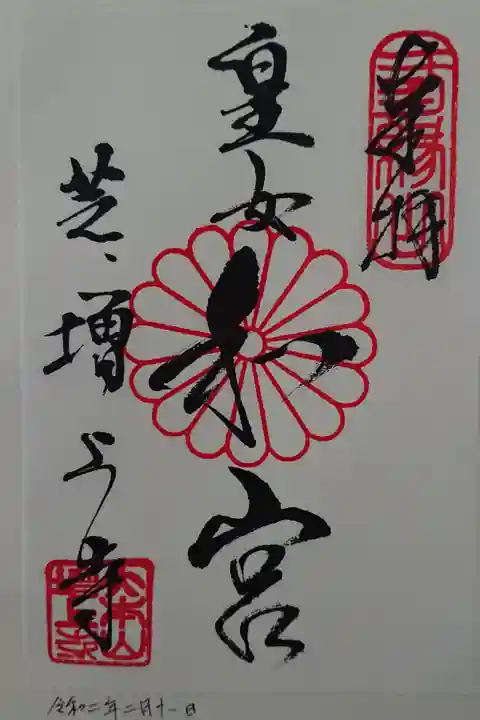 奉拝
皇女和宮
芝、増上寺
令和二年二月十一日